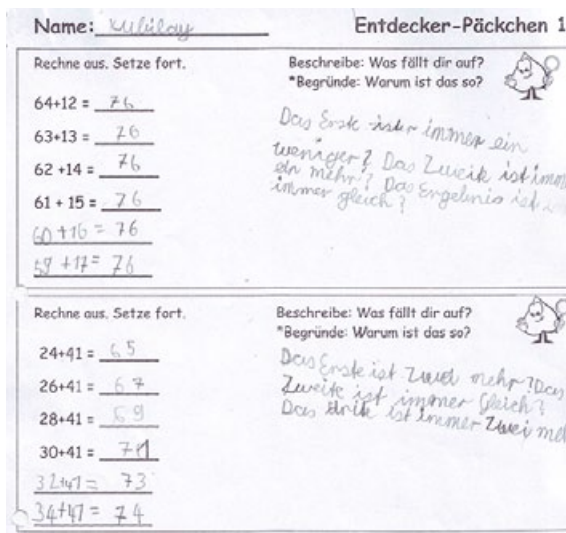 Name: Kubilay
Entdecker-Päckchen 1
Rechne aus. Setze fort.
64+12 = 76
63+13 = 76
62 +14 = 76
61 + 15 = 76
60 +16 = 76
59 +17= 76
Beschreibe: Was fällt dir auf?
*Begründe: Warum ist das so?
Das Erste immer ein
weniger? Das Zweite ist imm
ein mehr? Das Ergebnis ist
immer gleich?
Rechne aus. Setze fort.
24+41 = 65
26+41 = 67
28+41 = 69
30+41 = 71
32+41 = 73
34+41 = 74
Beschreibe: Was fällt dir auf?
*Begründe: Warum ist das so?
Das Erste ist mehr? Das
Zweite ist immer gleich?
Das drite ist immer Zwei me